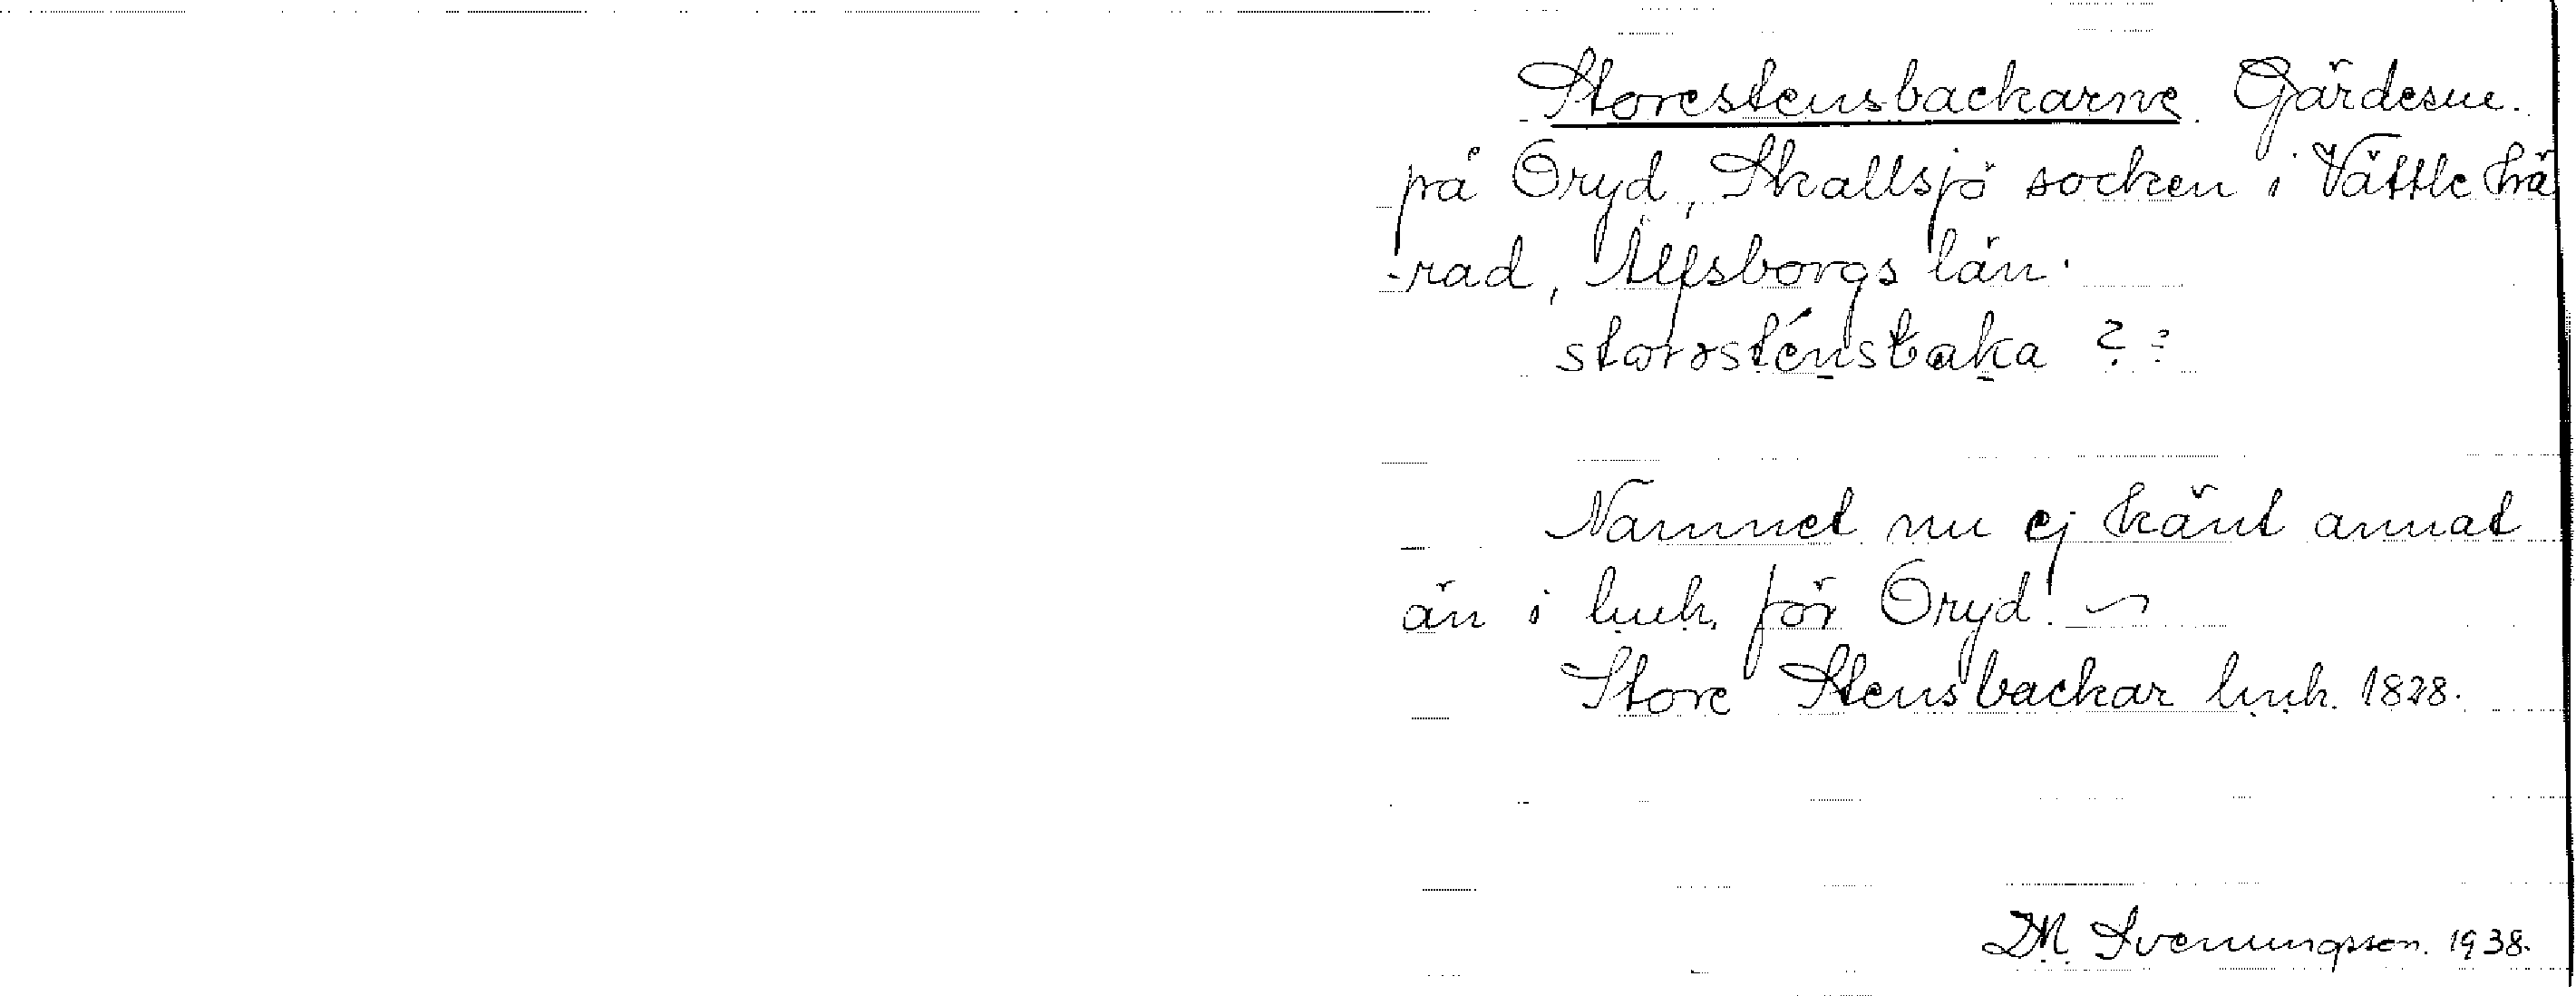 Storestensbackarne. Gärdesnr.
på Öryd, Skallsjö socken i Vättle hä
-rad, Älfsborgs län.
Namnet nu ej känt annat
än i lmk. för Öryd.
Store Stensbackar lmk. 1828.
DM. Svenungsson. 1938.